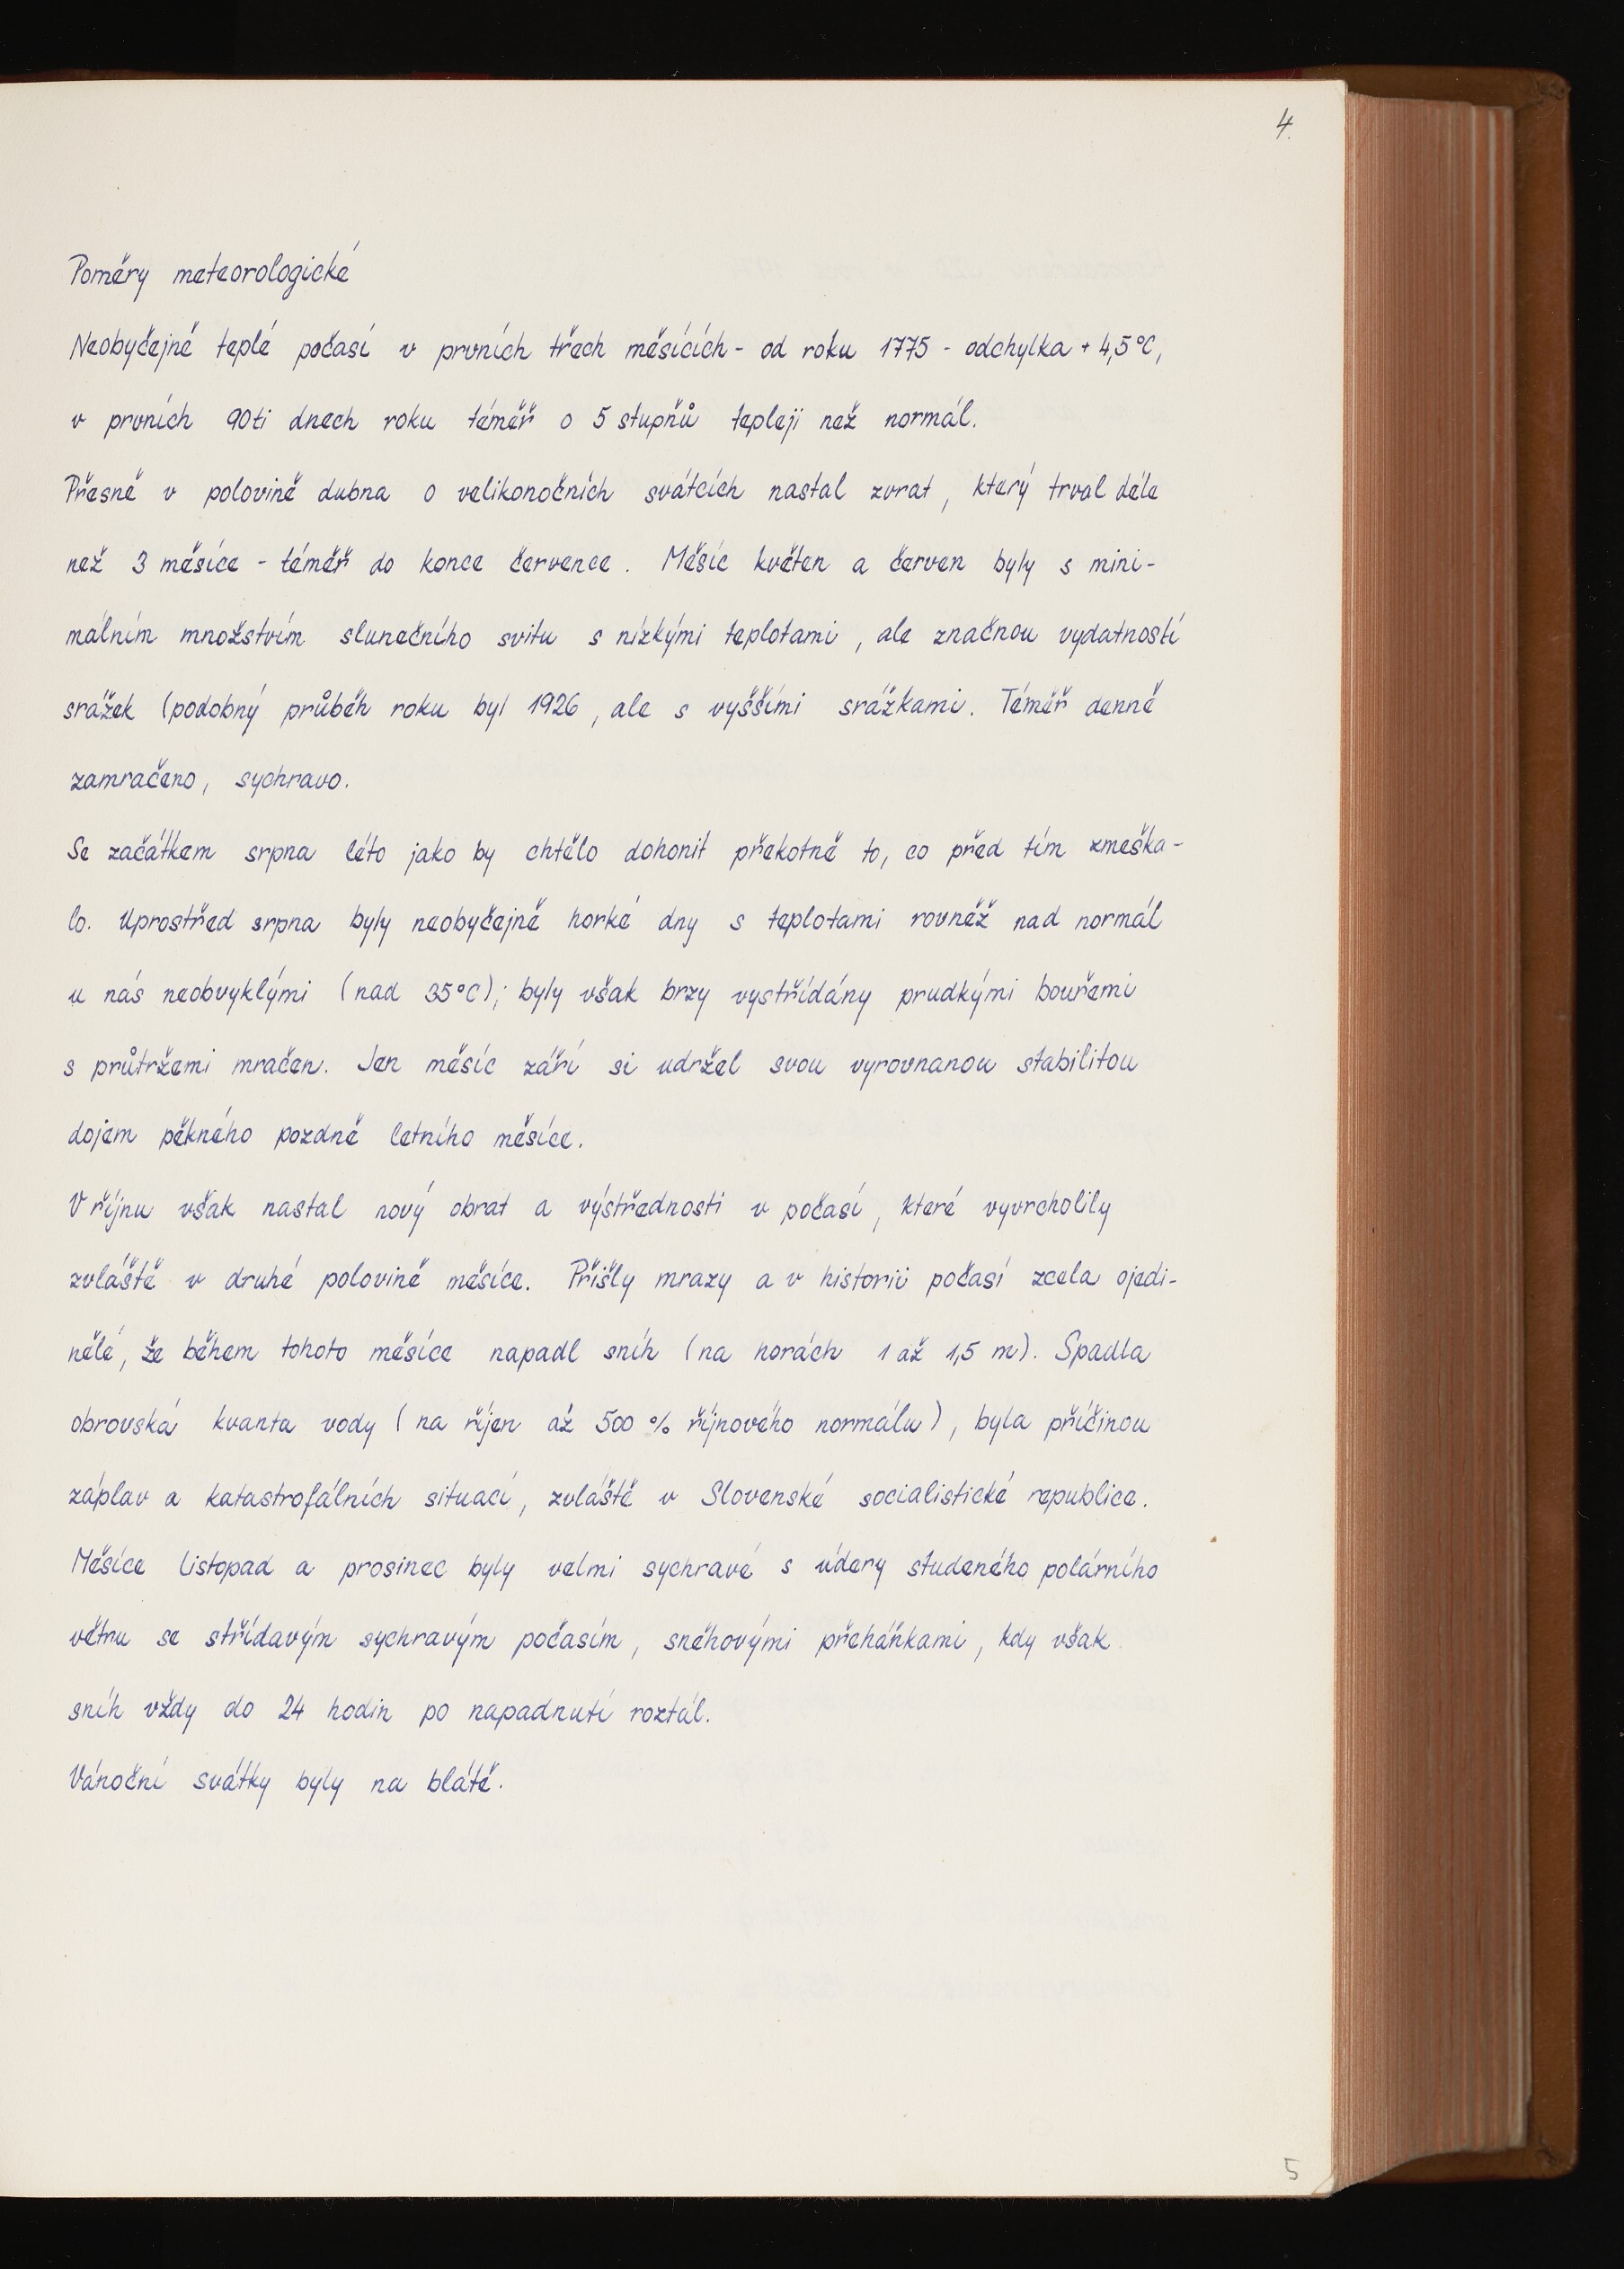 4.
Poměry meteorologické
Neobyčejně teplé počasí v prvních třech měsících - od roku 1775 - odchylka + 4,5°C,
v prvních 90ti dnech roku téměř o 5 stupňů tepleji než normál.
Přesně v polovině dubna o velikonočních svátcích nastal zvrat, který trval déle
než 3 měsíce - téměř do konce července. Měsíc květen a červen byly s mini-
málním množstvím slunečního svitu s nízkými teplotami, ale značnou vydatností
srážek (podobný průběh roku byl 1926, ale s vyššími srážkami. Téměř denně
zamračeno, sychravo.
Se začátkem srpna léto jako by chtělo dohonit překotně to, co před tím zmeška-
lo. Uprostřed srpna byly neobyčejně horké dny s teplotami rovněž nad normál
u nás neobvyklými (nad 35°C); byly však brzy vystřídány prudkými bouřemi
s průtržemi mračen. Jen měsíc září si udržel svou vyrovnanou stabilitou
dojem pěkného pozdně letního měsíce.
V říjnu však nastal nový obrat a výstřednosti v počasí, které vyvrcholily
zvláště v druhé polovině měsíce. Přišly mrazy a v historii počasí zcela ojedi-
nělé, že během tohoto měsíce napadl sníh (na horách 1 až 1,5 m). Spadla
obrovská kvanta vody (na říjen až 500 % říjnového normálu), byla příčinou
záplav a katastrofálních situací, zvláště v Slovenské socialistické republice.
Měsíce listopad a prosinec byly velmi sychravé s údery studeného polárního
větru se střídavým sychravým počasím, sněhovými přeháňkami, kdy však
sníh vždy do 24 hodin po napadnutí roztál.
Vánoční svátky byly na blátě.
5